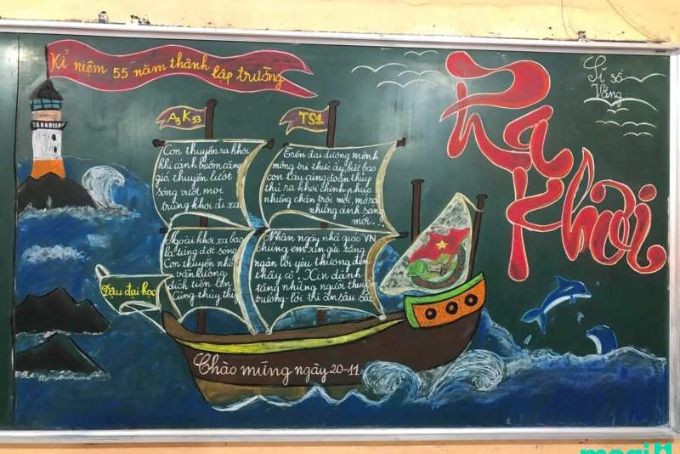 Kỉ niệm 55 năm thành lập trường
Ra
Khơi
Sĩ số
Vắng
A3 K53
TS1
Con thuyền ra khơi
khi cánh buồm căng
gió thuyền lướt
sóng vượt mọi
trùng khơi đi xa
Trên đại dương mênh
mông tri thức ấy, biết bao
con tàu cùng đoàn thủy
thủ ra khơi chinh phục
những chân trời mới, mở ra
những ánh sáng
mới
Ngoài khơi xa bao
la từng đợt sóng
Con thuyền nhỏ
vẫn không
đích tiến lên
cùng thủy thủ
Nhân ngày nhà giáo VN
chúng em xin gửi tặng
ngàn lời yêu thương đến
thầy cô. Xin dành
tặng những người thuyền
trưởng lời tri ân sâu sắc
Đậu đại học
Chào mừng ngày 20-11